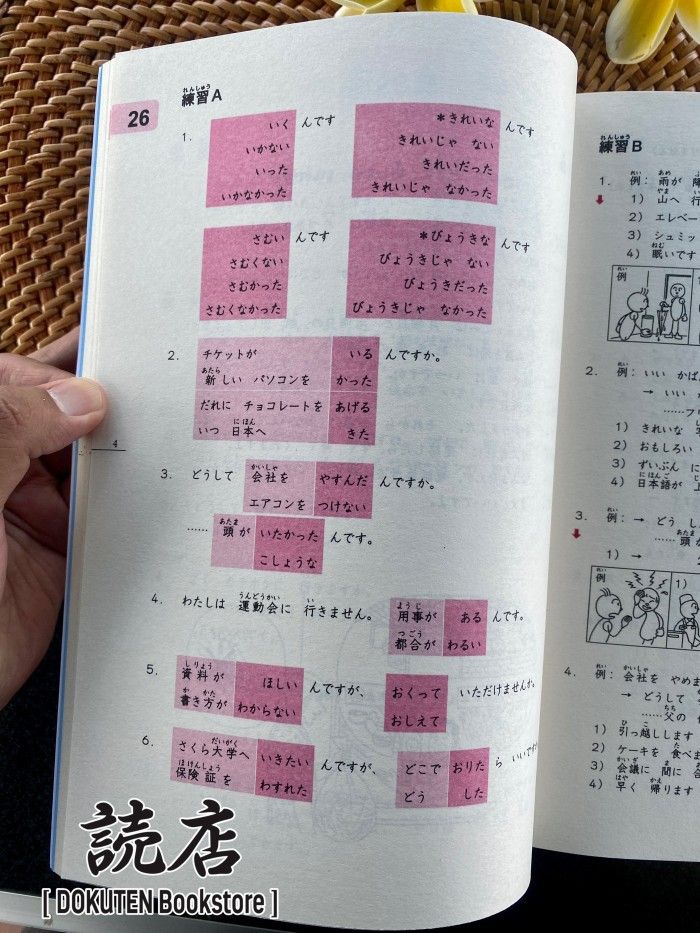 26
れんしゅう
練習A
1. いく んです
いかない
いった
いかなかった
*きれいな んです
きれいじゃ ない
きれいだった
きれいじゃ なかった
さむい んです
さむくない
さむかった
さむくなかった
*びょうきな んです
びょうきじゃ ない
びょうきだった
びょうきじゃ なかった
2. チケットが いる んですか。
あたら
新しい パソコンを かった
だれに チョコレートを あげる
にほん
いつ 日本へ きた
4
かいしゃ
3. どうして 会社を やすんだ んですか。
エアコンを つけない
あたま
…… 頭が いたかった んです。
こしょうな
うんどうかい い ようじ
4. わたしは 運動会に 行きません。 用事が ある んです。
つごう
都合が わるい
しりょう
5. 資料が ほしい んですが、 おくって いただけませんか。
か かた
書き方が わからない おしえて
だいがく
6. さくら大学へ いきたい んですが、 どこで おりた ら いいですか
ほけんしょう
保険証を わすれた どう した
れんしゅう
練習B
れい あめ
1. 例: 雨が
やま
1) 山へ 行
2) エレベー
3) シュミッ
ねむ
4) 眠いです
れい
れい
2. 例: いい かば
→ いい
……フ
1) きれいな
2) おもしろい
3) ずいぶん に
にほんご
4) 日本語が
れい
3. 例: → どう し
あたま
……頭
1) →
例
1)
れい かいしゃ
4. 例: 会社を やめま
→ どうして
ちち
……父の
ひ こ
1) 引っ越しします
た
2) ケーキを 食べま
かいぎ ま
3) 会議に 間に
はや かえ
4) 早く 帰ります
読店
[ DOKUTEN Bookstore ]